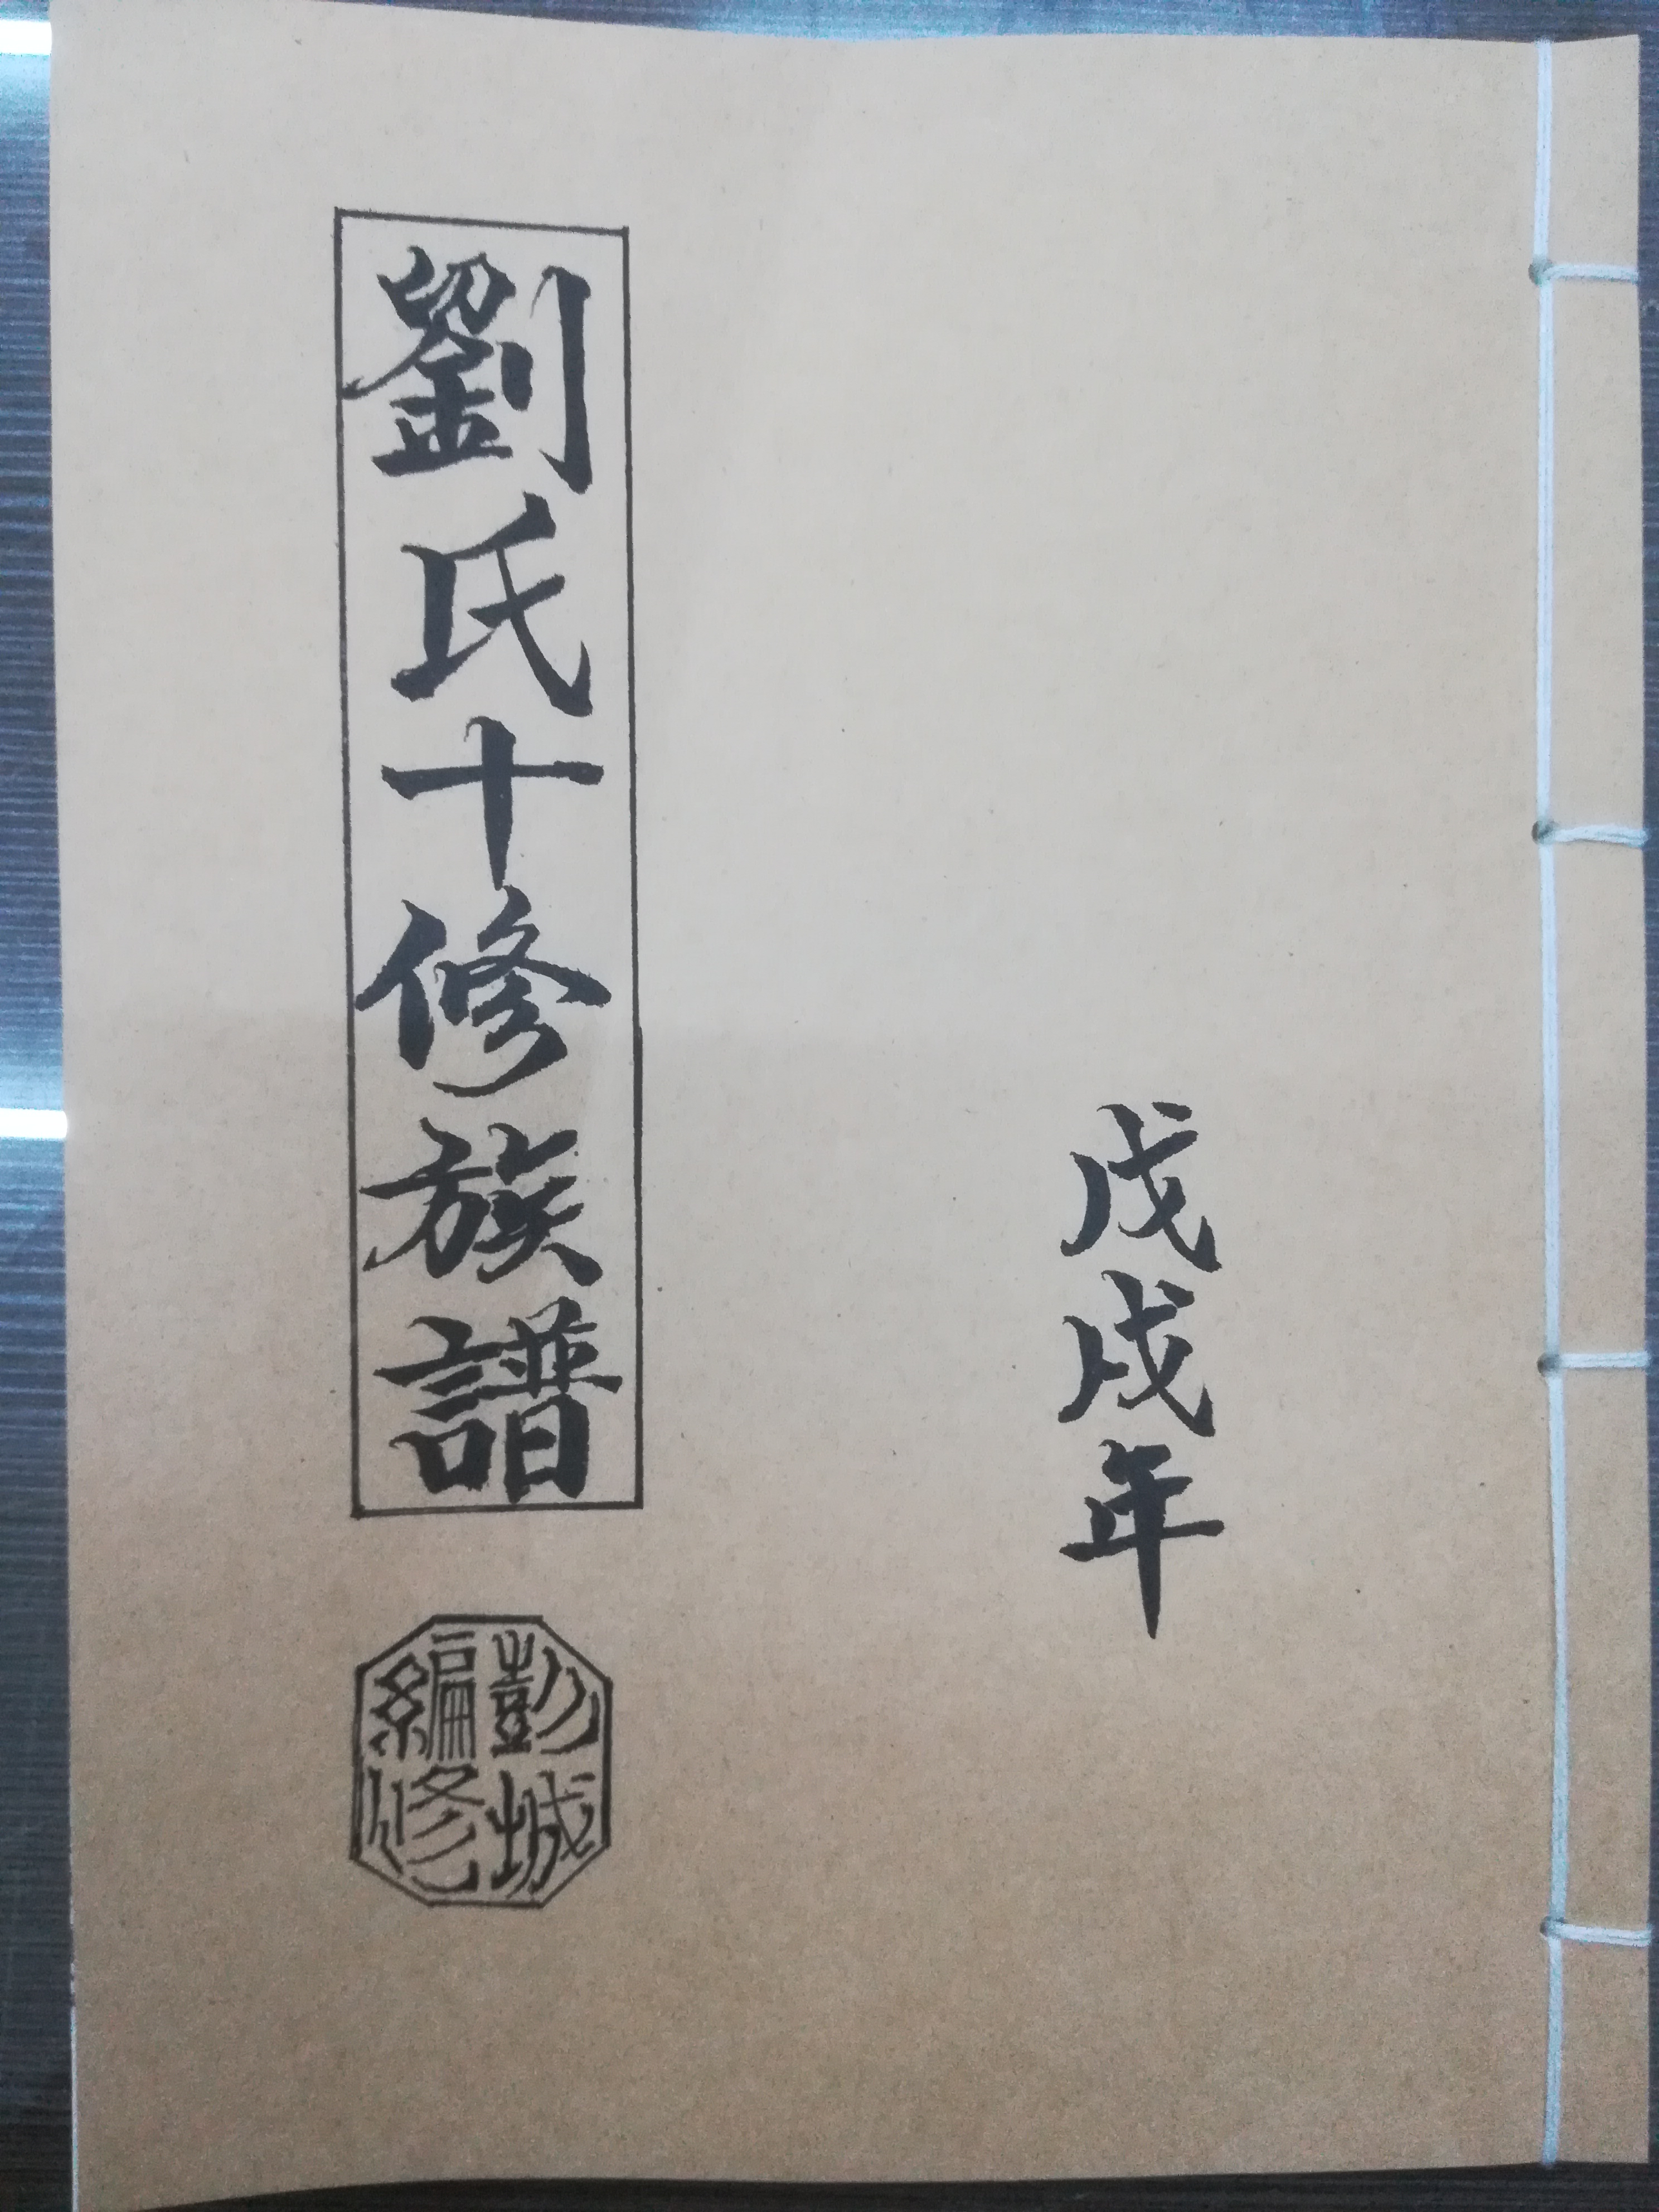 戊戌年
劉氏十修族譜
彭城
編修